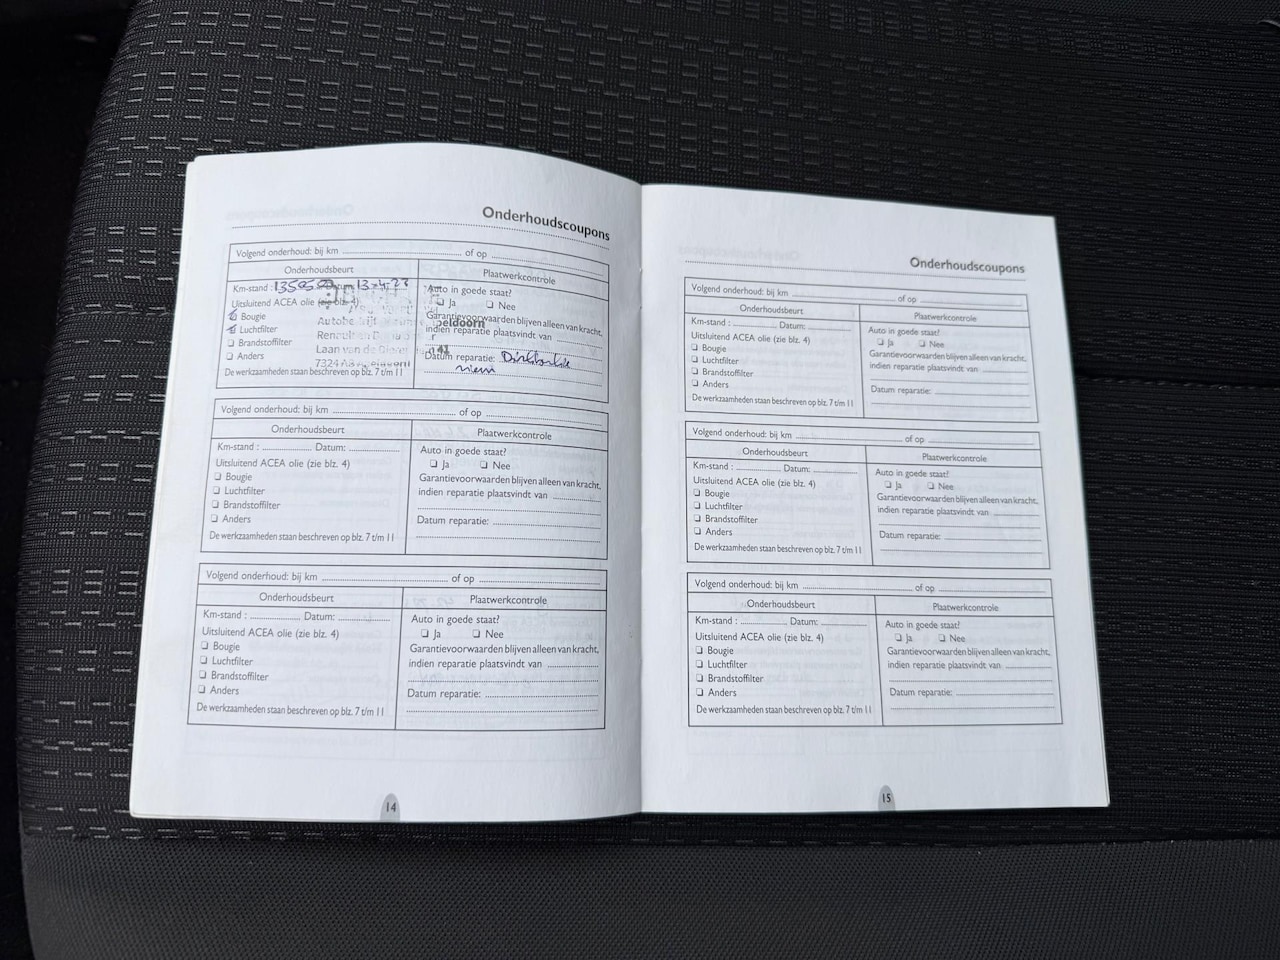 Onderhoudscoupons
Volgend onderhoud: bij km of op
Onderhoudsbeurt Plaatwerkcontrole
Km-stand :
Uitsluitend ACEA olie (zie blz. 4)
Bougie
Luchtfilter
Brandstoffilter
Anders
De werkzaamheden staan beschreven op blz. 7 t/m 11
Laan van de
Auto in goede staat?
Ja Nee
Garantievoorwaarden blijven alleen van kracht,
indien reparatie plaatsvindt van
Datum reparatie:
nieuw
Volgend onderhoud: bij km of op
Onderhoudsbeurt Plaatwerkcontrole
Km-stand : Datum:
Uitsluitend ACEA olie (zie blz. 4)
Bougie
Luchtfilter
Brandstoffilter
Anders
De werkzaamheden staan beschreven op blz. 7 t/m 11
Auto in goede staat?
Ja Nee
Garantievoorwaarden blijven alleen van kracht,
indien reparatie plaatsvindt van
Datum reparatie:
Volgend onderhoud: bij km of op
Onderhoudsbeurt Plaatwerkcontrole
Km-stand : Datum:
Uitsluitend ACEA olie (zie blz. 4)
Bougie
Luchtfilter
Brandstoffilter
Anders
De werkzaamheden staan beschreven op blz. 7 t/m 11
Auto in goede staat?
Ja Nee
Garantievoorwaarden blijven alleen van kracht,
indien reparatie plaatsvindt van
Datum reparatie:
14
Onderhoudscoupons
Volgend onderhoud: bij km of op
Onderhoudsbeurt Plaatwerkcontrole
Km-stand : Datum:
Uitsluitend ACEA olie (zie blz. 4)
Bougie
Luchtfilter
Brandstoffilter
Anders
De werkzaamheden staan beschreven op blz. 7 t/m 11
Auto in goede staat?
Ja Nee
Garantievoorwaarden blijven alleen van kracht,
indien reparatie plaatsvindt van
Datum reparatie:
Volgend onderhoud: bij km of op
Onderhoudsbeurt Plaatwerkcontrole
Km-stand : Datum:
Uitsluitend ACEA olie (zie blz. 4)
Bougie
Luchtfilter
Brandstoffilter
Anders
De werkzaamheden staan beschreven op blz. 7 t/m 11
Auto in goede staat?
Ja Nee
Garantievoorwaarden blijven alleen van kracht,
indien reparatie plaatsvindt van
Datum reparatie:
Volgend onderhoud: bij km of op
Onderhoudsbeurt Plaatwerkcontrole
Km-stand : Datum:
Uitsluitend ACEA olie (zie blz. 4)
Bougie
Luchtfilter
Brandstoffilter
Anders
De werkzaamheden staan beschreven op blz. 7 t/m 11
Auto in goede staat?
Ja Nee
Garantievoorwaarden blijven alleen van kracht,
indien reparatie plaatsvindt van
Datum reparatie:
15